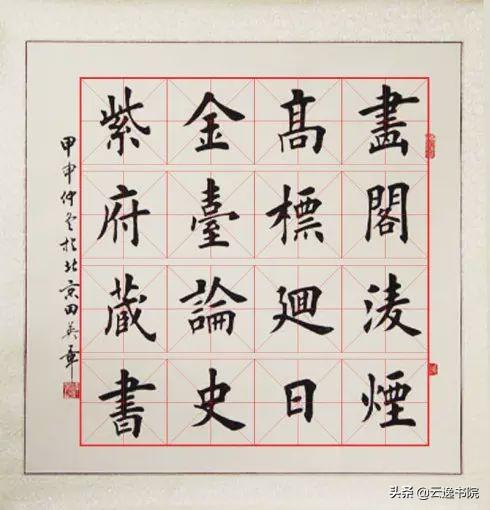 畫閣淩煙
髙標廻日
金臺論史
紫府蔵書
甲申仲冬於北京田英章
头条 @云逸书院